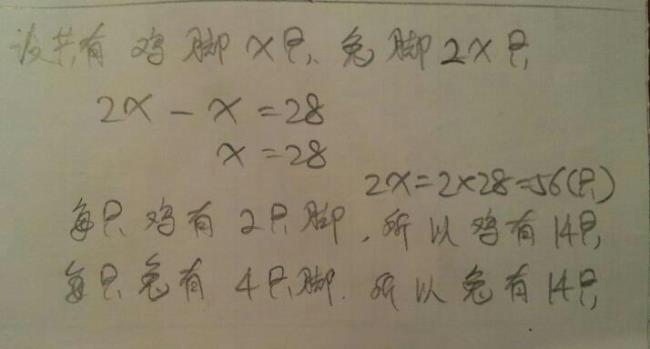 设共有鸡脚x只、兔脚2x只
2x - x = 28
x = 28
2x=2×28=56(只)
每只鸡有2只脚，所以鸡有14只，
每只兔有4只脚．所以兔有14只，